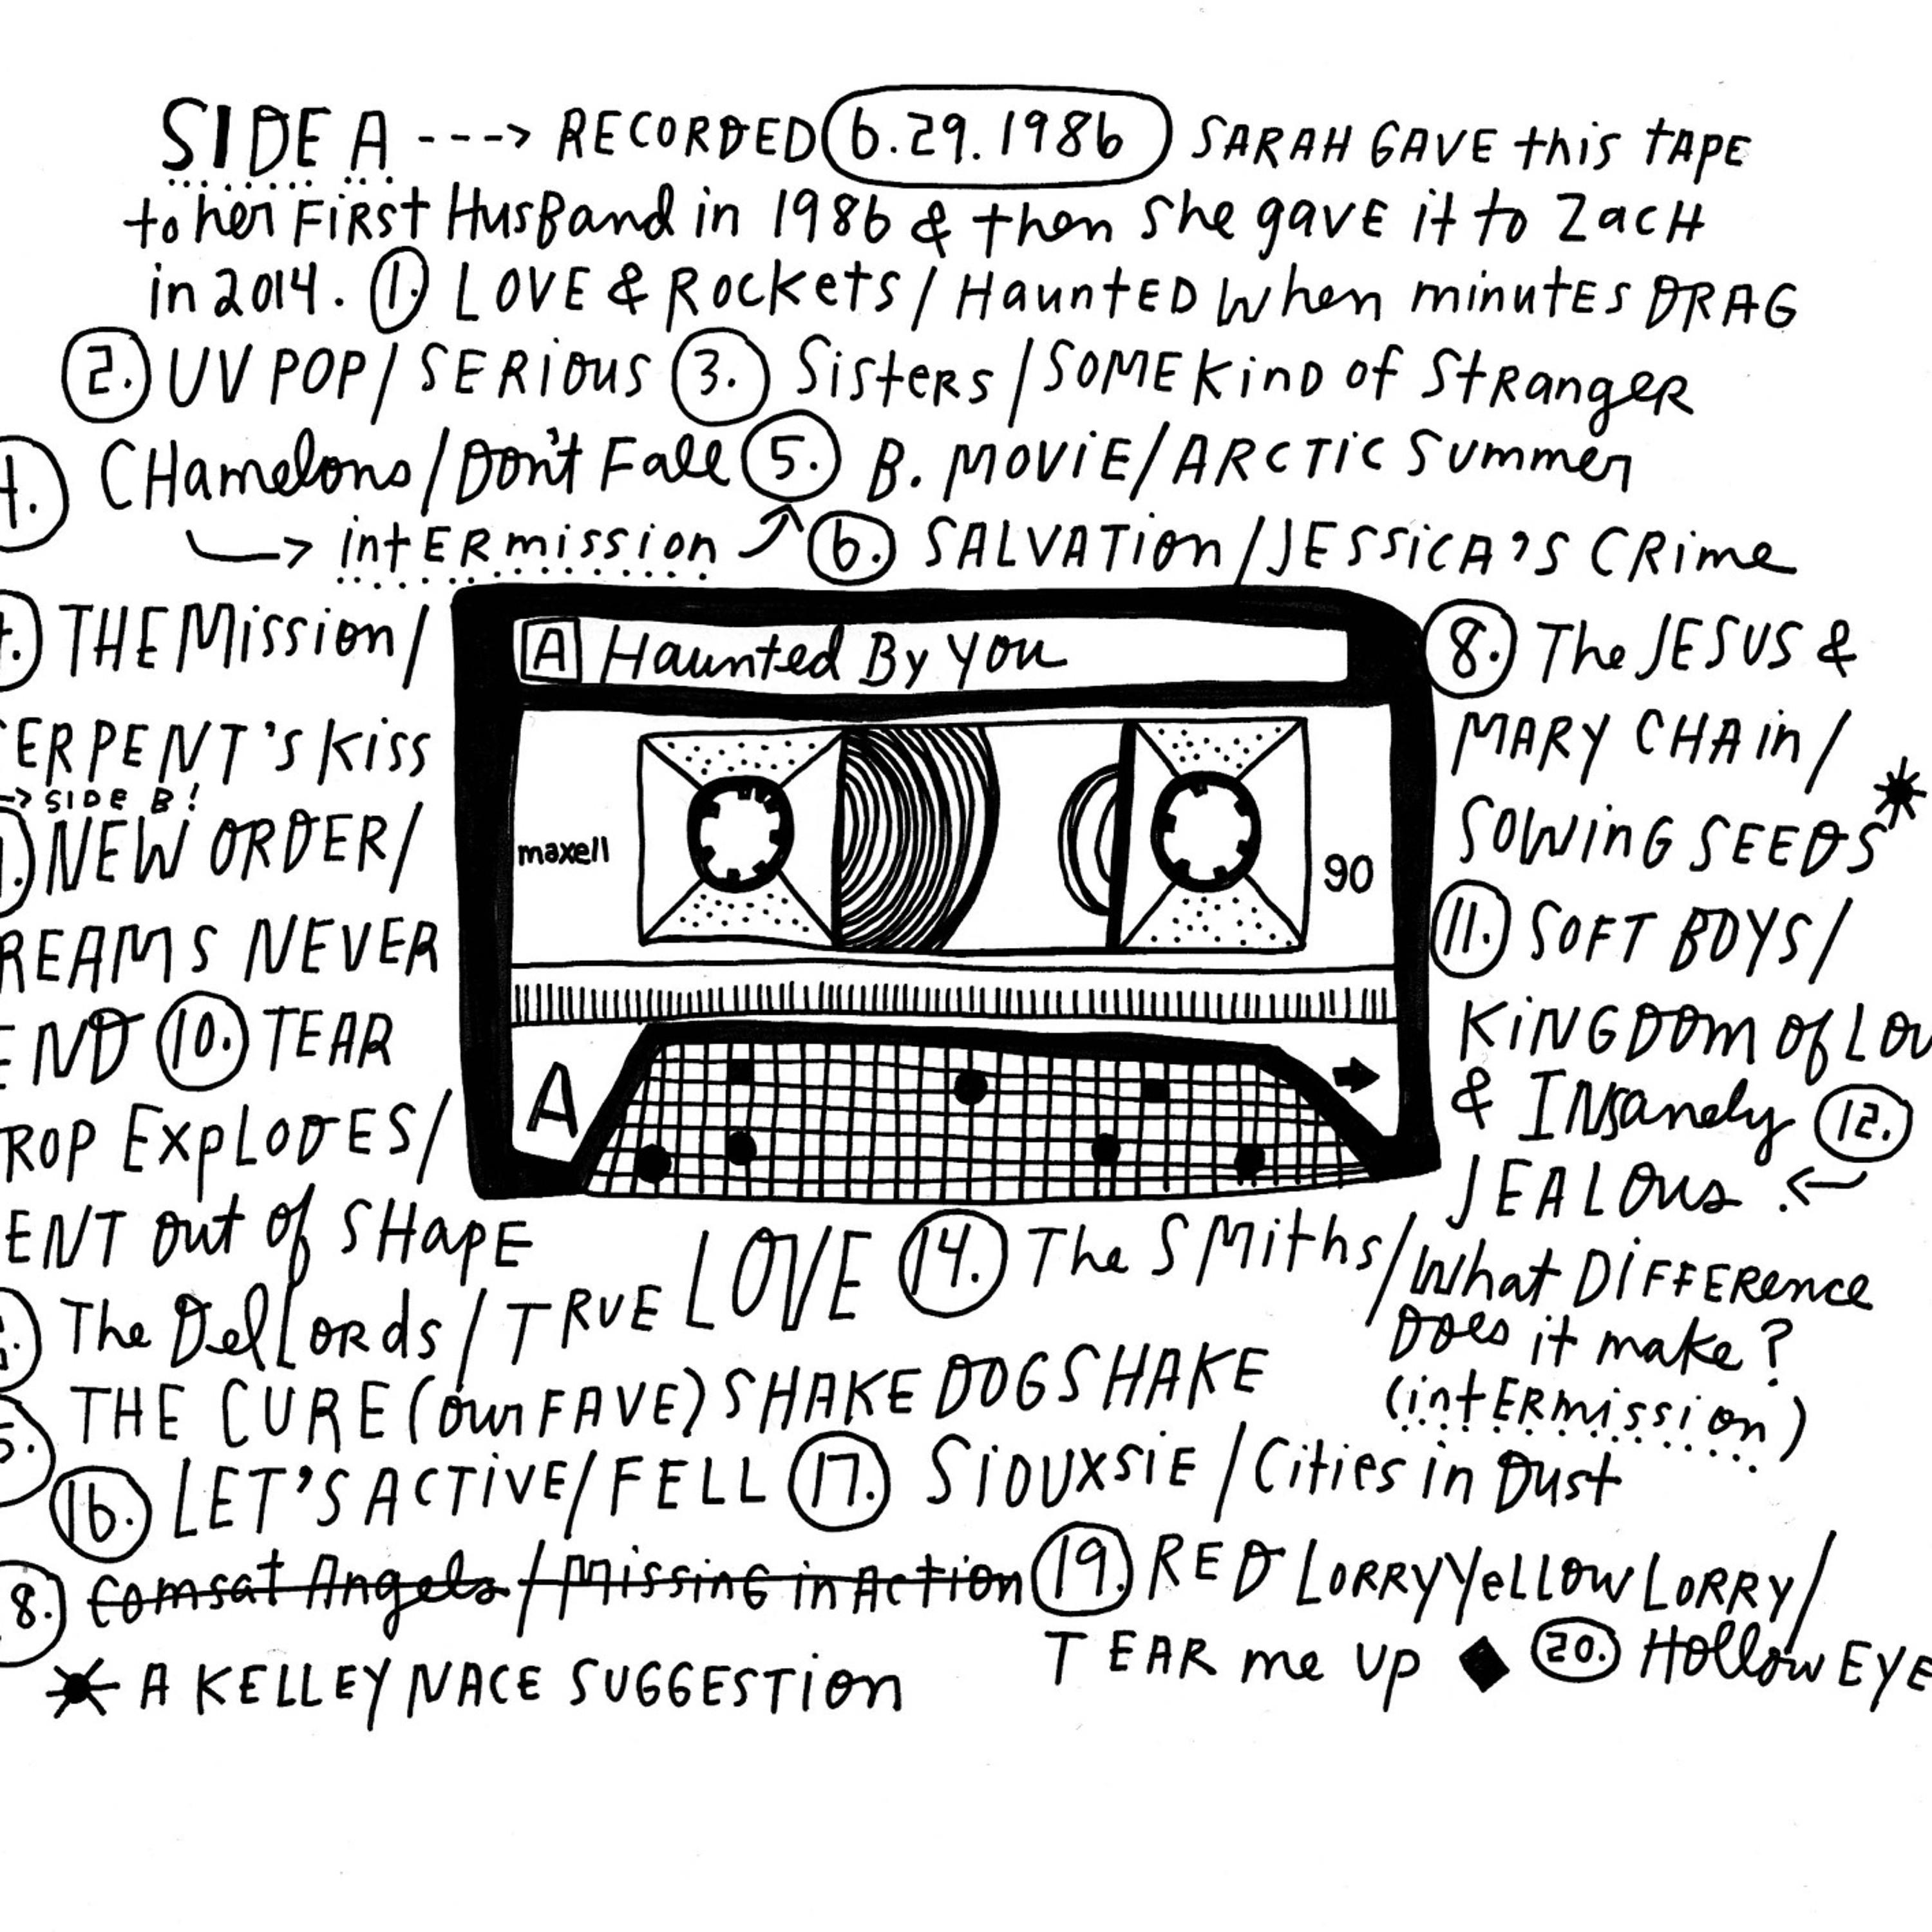 SIDE A ---> RECORDED 6.29.1986 SARAH GAVE this TAPE
to her FIRST HUSBAND in 1986 & then She gave it to ZACH
in 2014. 1. LOVE & ROCKETS / HAUNTED When minutes DRAG
2. UV POP / SERIOUS 3. Sisters / SOME KIND OF STRANGER
4. CHamelons / Don't Fall 5. B. MOVIE / ARCTIC Summer
→ intERmission ↗ 6. SALVATION / JESSICA'S CRIME
THE Mission /
ERPENT'S KISS
→ SIDE B!
NEW ORDER /
REAMS NEVER
END 10. TEAR
ROP EXPLODES /
ENT out of SHAPE
A Haunted By You
maxell
90
A
8. The JESUS &
MARY CHAIN /
SOWING SEEDS *
11. SOFT BOYS /
KINGDOM of LOV
& INsanely 12.
JEALOUS ←
The Del Lords / TRUE LOVE 14. The SMiths / What DIFFERence
Does it make?
(intERmission)
5. THE CURE (our FAVE) SHAKE DOG SHAKE
16. LET'S ACTIVE / FELL 17. SIOUXSIE / Cities in Dust
8. Comsat Angels / Missing in Action 19. RED LORRY YELLOW LORRY /
TEAR me UP ◆ 20. Hollow EYE
* A KELLEY NACE SUGGESTION